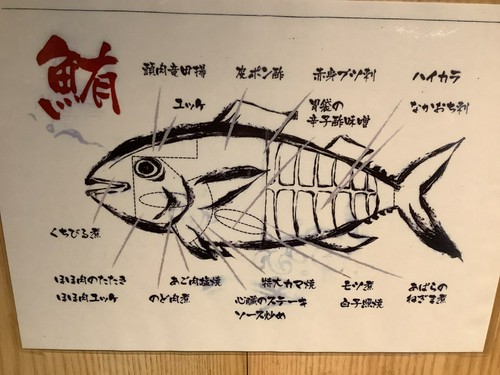 鮪
頭肉竜田揚
皮ポン酢
赤身ブツ刺
ハイカラ
ユッケ
胃袋の
辛子酢味噌
なかおち刺
くちびる煮
ほほ肉のたたき
ほほ肉ユッケ
あご肉塩焼
のど肉煮
特大カマ焼
心臓のステーキ
ソース炒め
モツ煮
白子照焼
あばらの
ねぎま煮